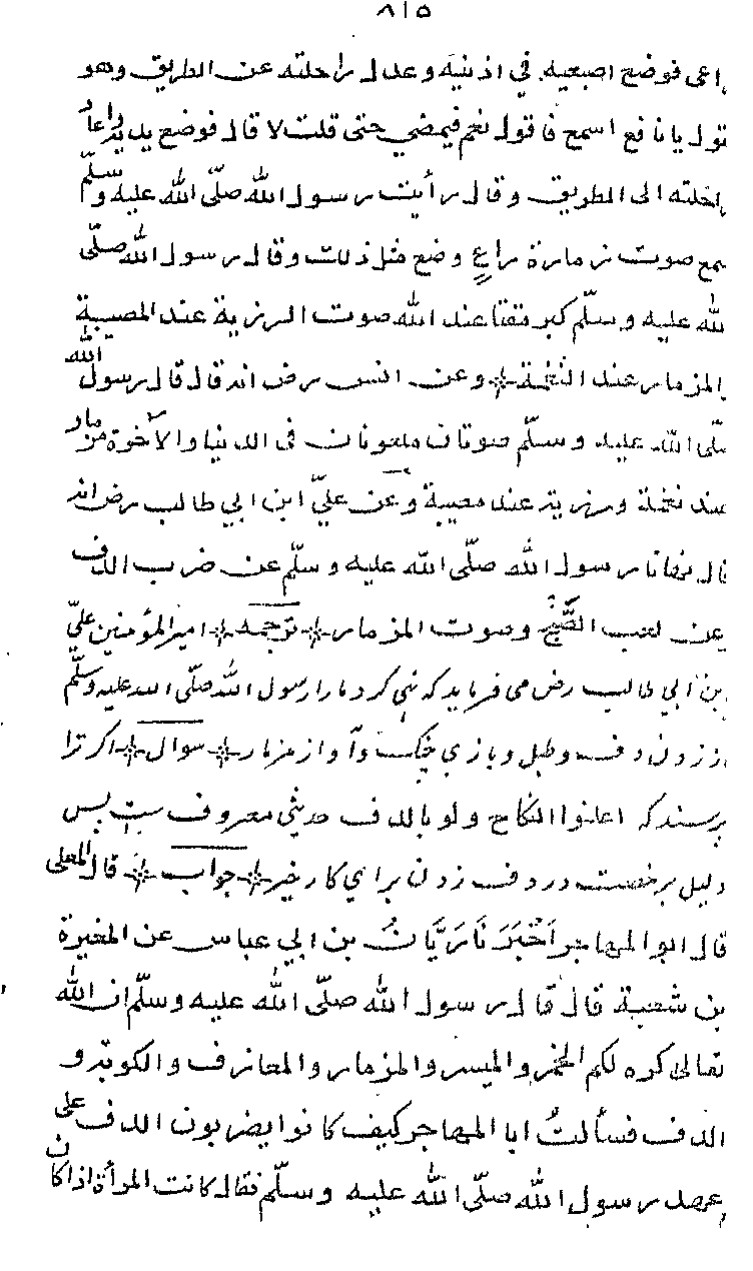 ٨١٥
راعى فوضع اصبعيه في اذنيه وعدل راحلته عن الطريق وهو
يقول يا نافع اسمع فاقول نعم فيمضي حتى قلت لا قال فوضع يديه واعاد
راحلته الى الطريق وقال رأيت رسول الله صلّى الله عليه وسلّم
سمع صوت زمارة راعٍ وضع مثل ذلك وقال رسول الله صلّى
الله عليه وسلّم كبر مقتا عند الله صوت الرزية عند المصيبة
والمزمار عند النغمة وعن انس رض انه قال قال رسول الله
صلّى الله عليه وسلّم صوتان ملعونان فى الدنيا والآخرة مزمار
عند نغمة ورزية عند مصيبة وعن عليّ ابن ابي طالب رض انه
قال نهانا رسول الله صلّى الله عليه وسلّم عن ضرب الدف
وعن لعب الصّنج وصوت المزمار ترجمه امير المؤمنين عليّ
بن ابي طالب رض مى فرمايد كه نهي كرد مارا رسول الله صلّى الله عليه وسلّم
از زدن دف وطبل وبازي چنگ وآواز مزمار سوال اكر ترا
پرسند كه اعلنوا النكاح ولو بالدف حديثي معروف ست پس
دليل بر خصت درد دف زدن براي كار خير جواب قال المعلى
قال ابو المهاجر اَخْبَرَنَا رَيَّانُ بن ابي عباس عن المغيرة
بن شعبة قال قال رسول الله صلّى الله عليه وسلّم ان الله
تعالى كره لكم الخمر والميسر والمزمار والمعازف والكوبة و
الدف فسألتُ ابا المهاجر كيف كانوا يضربون الدف على
عهد رسول الله صلّى الله عليه وسلّم فقال كانت المرأة اذا كان